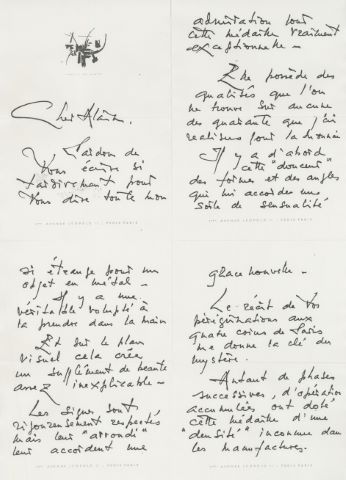 Cher Alain.
Pardon de
vous écrire si
tardivement pour
vous dire toute mon
admiration pour
cette médaille vraiment
exceptionnelle -
Elle possède des
qualités que l'on
ne trouve sur aucune
des quarante que j'ai
réalisées pour la monnaie
Il y a d'abord
cette "douceur"
des formes et des angles
qui lui accordes une
sorte de sensualité
si étrange pour un
objet en métal -
Il y a une
véritable volupté à
la prendre dans la main
Et sur le plan
visuel cela crée
un supplément de beauté
assez inexplicable -
Les signes sont
rigoureusement respectés
mais leur "arrondi"
leur accordent une
grace nouvelle -
Le récit de vos
pérégrinations aux
quatre coins de Paris
me donne la clé du
mystère.
Autant de phases
successives, d'opérations
accumulées ont doté
cette médaille d'une
"densité" inconnue dans
les manufactures.